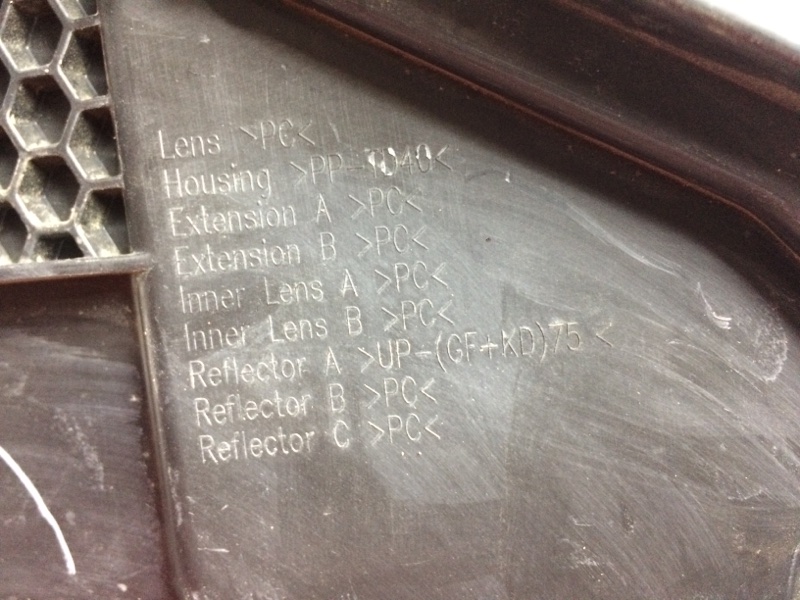 Lens >PC<
Housing >PP-TD40<
Extension A >PC<
Extension B >PC<
Inner Lens A >PC<
Inner Lens B >PC<
Reflector A >UP-(GF+KD)75 <
Reflector B >PC<
Reflector C >PC<